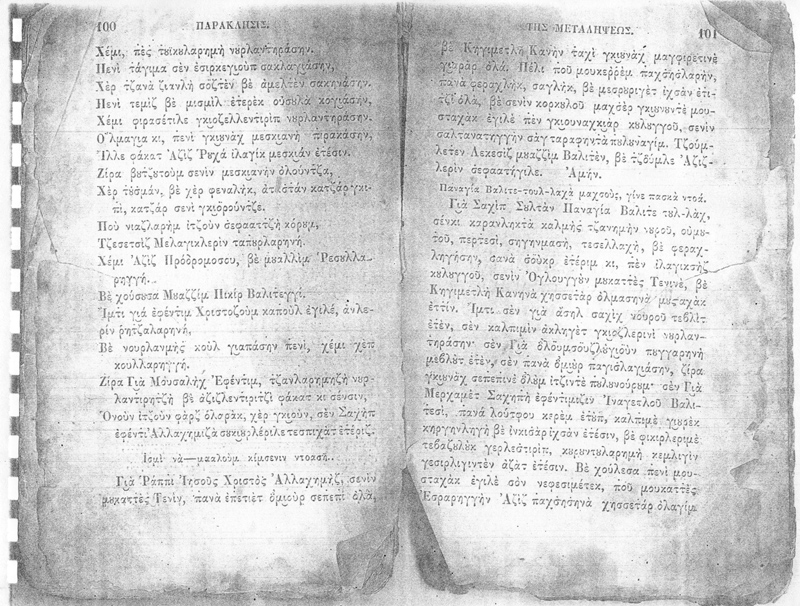 100 ΠΑΡΑΚΛΗΣΙΣ.
Χέμι, πὲς τȣϊκȣλαρημὴ νȣρλαντηράσην.
Πενὶ τάγιμα σὲν ἐσιρκεγιοὺπ σακλαγιάσην,
Χὲρ τζανὰ ζιανλὴ σὸζτὲν βὲ ἀμελτὲν σακηνάσην.
Πενὶ τεμὶζ βὲ μισμὶλ ἐτερὲκ οὐσȣλὰ κογιάσην,
Χέμι φιρασέτιλε γκιοζελλεντιρὶπ νȣρλαντηράσην.
Ὀλμαγια κι, πενὶ γκιȣνὰχ μεσκιανὴ πηρακάσην,
Ἴλλε φάκατ Ἀζὶζ Ῥȣχὰ ἰλαγὶκ μεσκιὰν ἐτέσιν.
Ζίρα βȣτζȣτοὺμ σενὶν μεσκιανὴν ὀλοὺντζα,
Χὲρ τȣσμὰν, βὲ χὲρ φεναλὴκ, ἀτεστὰν κατζὰρ γκι-
πὶ, κατζὰρ σενὶ γκιὀροὺντζε.
Ποὺ νιαζλαρὴμ ἰτζοὺν σεφαατζὴ κόρȣμ,
Τζεσετσὶζ Μελαγικλερὶν ταπȣρλαρηνὴ.
Χέμι Ἀζὶζ Πρόδρομοσου, βὲ μȣαλλὶμ Ῥεσȣλλα-
ρηγγὴ.
Βὲ χοὺσȣσα Μȣαζζὶμ Πικὶρ Βαλιτεγγί.
Ἴμτι γιὰ ἐφέντιμ Χριστοζοὺμ καποὺλ ἐγιλὲ, ἀνλε-
ρὶν ῥητζαλαρηνὴ,
Βὲ νουρλανμὴς κοὺλ γιαπάσην πενὶ, χέμι χὲπ
κουλλαρηγγὴ.
Ζίρα Γιὰ Μȣσαλὴχ Ἐφέντιμ, τζανλαρημηζὴ νȣρ-
λαντιρητζὴ βὲ ὀζιζλεντιριτζὶ φάκατ κι σένσιν,
Ὀνοὺν ἰτζοὺν φὰρζ ὀλαρὰκ, χὲρ γκιοὺν, σὲν Σαχὴπ
ἐφέντι Ἀλλαχημιζὰ
Ἰσμὶ νὰ—μααλοὺμ κίμσενιν ντοασὴ.
Γιὰ Ῥάππι Ἰησοῦς Χριστὸς Ἀλλαχημὴζ, σενὶν
μȣκαττὲς Τενὶν, πανὰ ἐπετιὲτ ὀμιοὺρ σεπεπὶ ὀλὰ,
ΤΗΣ ΜΕΤΑΛΗΨΕΩΣ. 101
βὲ Κηγιμετλὴ Κανὴν ταχὶ γκιȣνὰχ μαγφιρετινὲ
γιαρὰρ ὀλά. Πέλι ποῦ μουκερρὲμ παχσησλαρὴν,
πανὰ φεραχλὴκ, σαγλὴκ, βὲ μεσρȣριγὲτ ἰχσὰν ἐτι-
τζὶ ὀλὰ, βὲ σενὶν κορκȣλοὺ μαχσὲρ γκιȣνȣντὲ μου-
σταχὰκ ἐγιλὲ πὲν γκιουναχκιὰρ κȣλȣγγοὺ, σενὶν
σαλτανατηγγὴν σὰγ ταραφηντὰ πȣλȣναγὶμ. Τζοὺμ-
λετὲν Λεκεσὶζ μȣαζζὶμ Βαλιτὲν, βὲ τζȣμλε Ἀζὶζ-
λερὶν σεφαατήγιλε. Ἀμήν.
Παναγία Βαλιτε-τουλ-λαχὰ μαχσοὺς, γίνε πασκὰ ντοά.
Γιὰ Σαχὶπ Σȣλτὰν Παναγία Βαλιτὲ τȣλ-λὰχ,
σένκι καρανλὴκτα καλμὴς τζανημὴν νȣροὺ, οὐμȣ-
τοὺ, περτεσὶ, σηγηνμασὴ, τεσελλαχὴ, βὲ φεραχ-
ληγήσην, σανὰ σοὺκρ ἐτέριμ κι, πὲν ἰλαγικσὴζ
κȣλȣγγοὺ, σενὶν Ὀγλουγγοὺν μȣκαττὲς Τενινὲ, βὲ
Κηγιμετλὴ Κανηνὰ χησσετὰρ ὀλμασηνὰ μȣσταχὰκ
ἐττίν. Ἴμτι σὲν γιὰ ἀσὴλ σαχὶχ νουροὺ τεβλὶτ
ἐτὲν, σὲν καλπιμὶν ἀκληγὲτ γκιοζλερινὶ νȣρλαν-
τηράσην· σὲν Γιὰ ὀλȣμσȣζλȣγιοὺν πȣγγαρηνὴ
μεβλȣτ ἐτὲν, σὲν πανὰ ὀμιοὺρ παγισλαγιάσην, ζίρα
γκιȣνὰχ σεπεπινὲ ὀλȣμ ἰτζιντὲ πȣλȣνούρȣμ· σὲν Γιὰ
Μερχαμὲτ Σαχηπὴ ἐφεντιμιζὶν Ἰναγετλοὺ Βαλι-
τεσὶ, πανὰ λούτφου κερὲμ ἐτȣπ, καλπιμὲ γιȣρὲκ
κηργηνληγὴ βὲ ἰνκισὰρ ἰχσὰν ἐτέσιν, βὲ φικιρλεριμὲ
τεβαζȣλȣκ γερλεστιρὶπ, κȣρȣντȣλαρημὴ κεμλιγὶν
γεσιρλιγιντὲν ἀζὰτ ἐτέσιν. Βὲ χούλεσα πενὶ μου-
σταχὰκ ἐγιλὲ σὸν νεφεσιμέτεκ, ποῦ μουκαττὲς
Ἐσραρηγγὴν Ἀζὶζ παχσησηνὰ χησσετὰρ ὀλαγὶμ